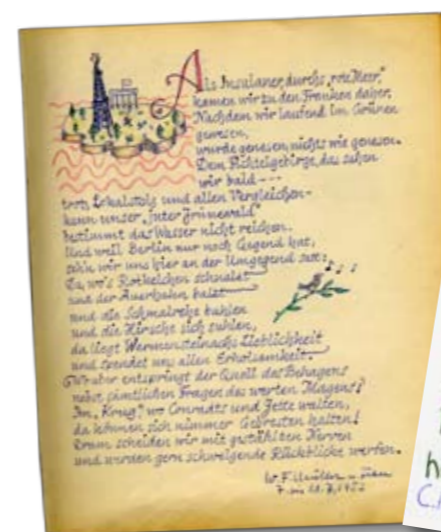 Als Insulaner, durchs „rote Meer",
kamen wir zu den Franken daher.
Nachdem wir laufend im Grünen
gewesen,
wurde genesen, nichts wie genesen.
Dem Fichtelgebirge, das sahen
wir bald ---
trotz Lokalstolz und allen Vergleichen -
kann unser „juter Jrunewald"
bestimmt das Wasser nicht reichen.
Und weil Berlin nur noch Gegend hat,
seh'n wir uns hier an der Umgegend satt:
Da, wo's Rotkelchen schnalzt
und der Auerhahn balzt
und die Schmalrehe buhlen
und die Hirsche sich suhlen,
da liegt Warmensteinachs Lieblichkeit
und spendet uns allen Erholsamkeit.
Woraus entspringt der Quell des Behagens
nebst sämtlichen Fragen des werten Magens?
Im „Krug", wo Conradts und Jette walten,
da können sich nimmer Gebresten halten!
Drum scheiden wir mit gestählten Nerven
und werden gern schwelgende Rückblicke werfen.
W. F. Müller u. Frau
h
C.